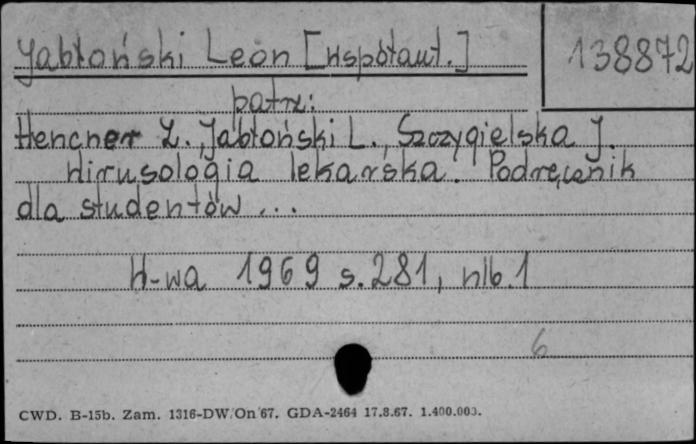 Jabłoński Leon [współaut.]
138872
patrz:
Hencner Z., Jabłoński L., Szczygielska J.
Wirusologia lekarska. Podręcznik
dla studentów ...
W-wa 1969 s. 281, nlb. 1
6
CWD. B-15b. Zam. 1316-DW/On 67. GDA-2464 17.8.67. 1.400.000.